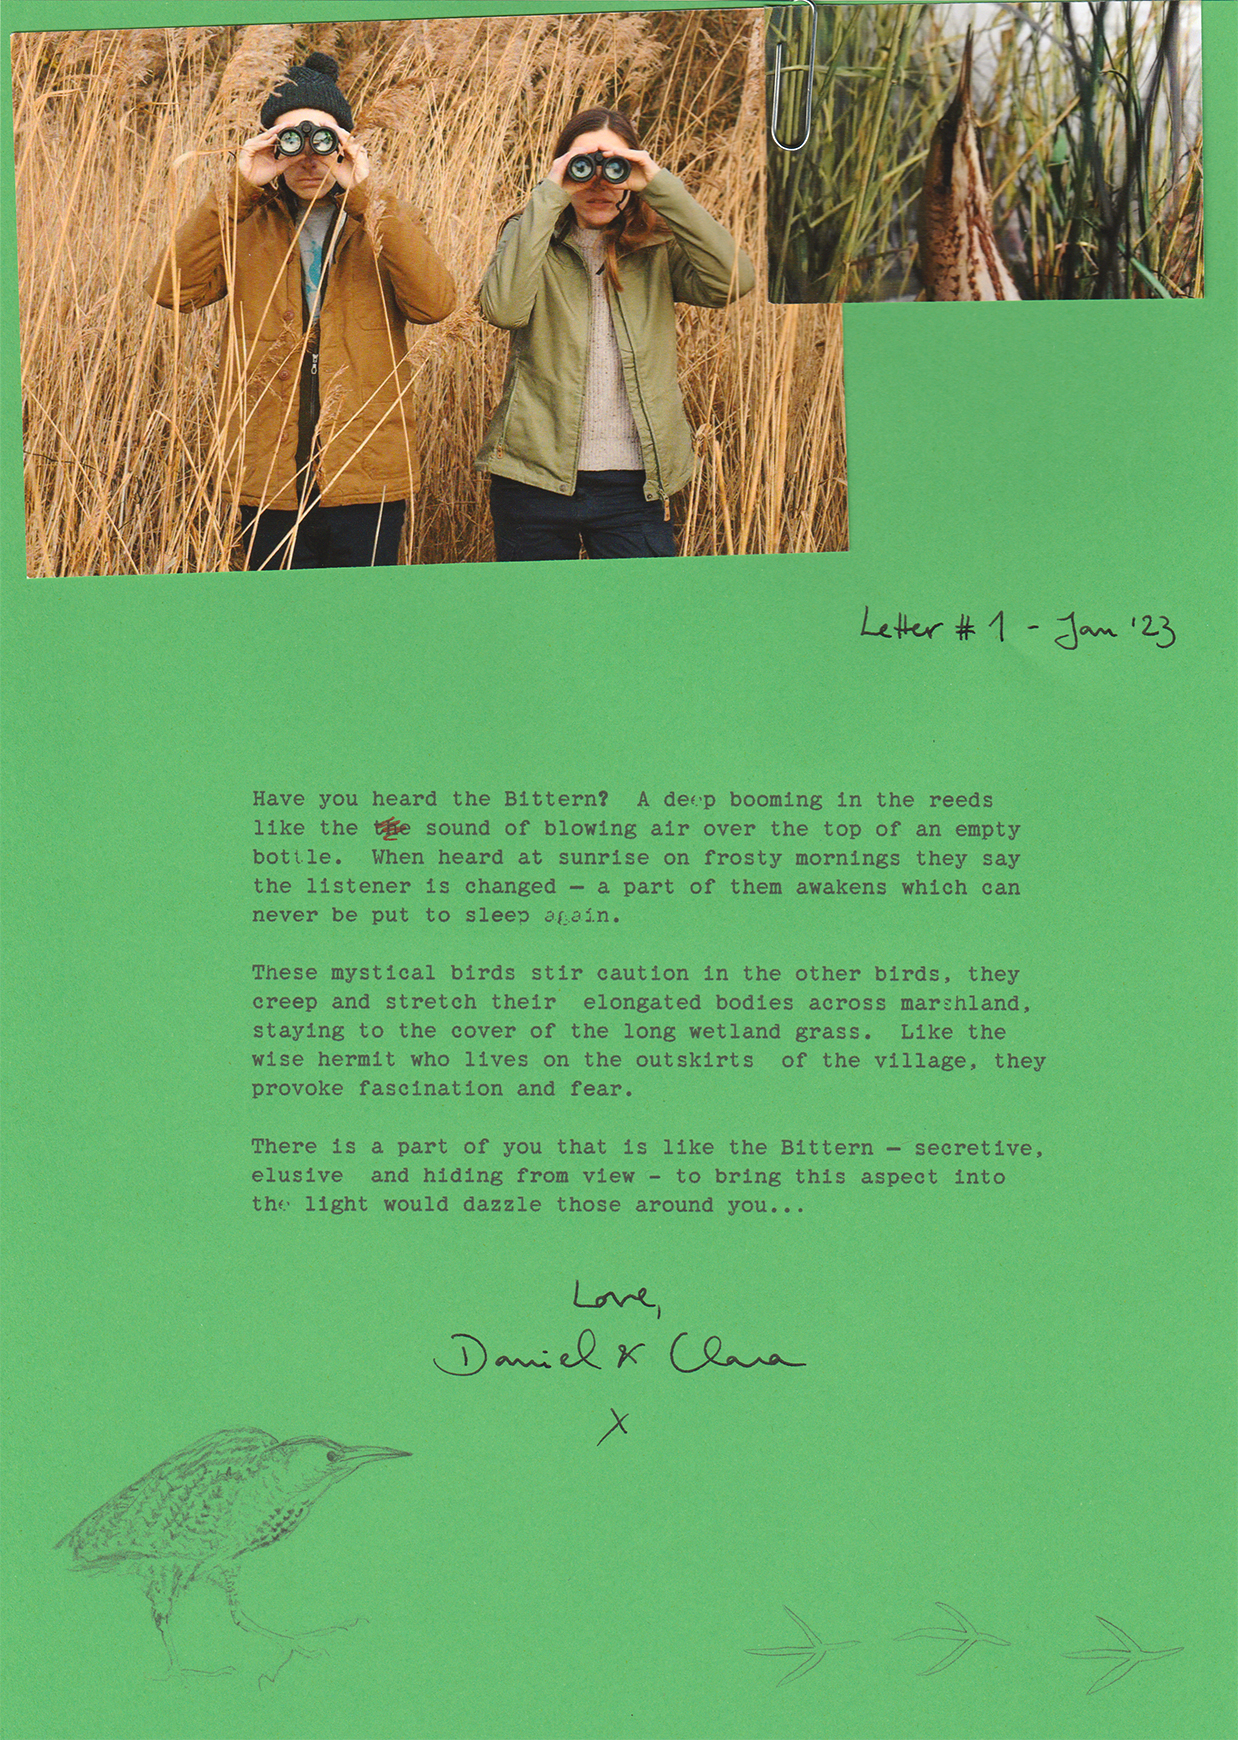 Letter # 1 - Jan '23
Have you heard the Bittern?  A deep booming in the reeds
like the the sound of blowing air over the top of an empty
bottle.  When heard at sunrise on frosty mornings they say
the listener is changed — a part of them awakens which can
never be put to sleep again.
These mystical birds stir caution in the other birds, they
creep and stretch their  elongated bodies across marshland,
staying to the cover of the long wetland grass.  Like the
wise hermit who lives on the outskirts  of the village, they
provoke fascination and fear.
There is a part of you that is like the Bittern — secretive,
elusive  and hiding from view – to bring this aspect into
the light would dazzle those around you...
Love,
Daniel & Clara
X